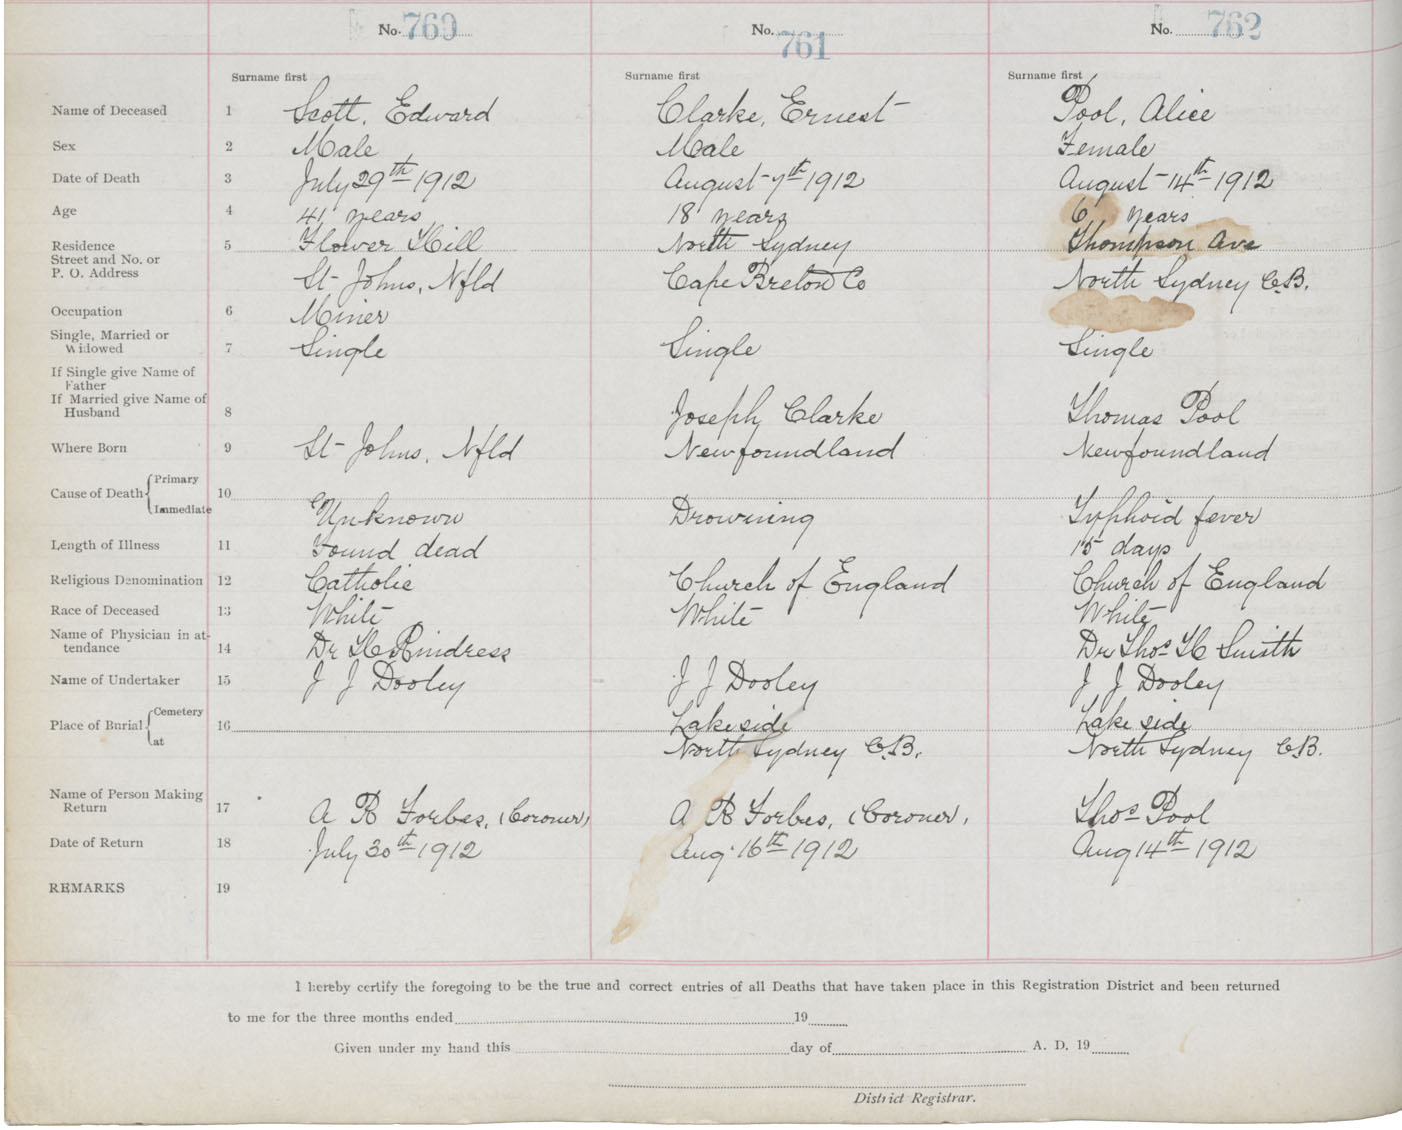 No. 760 No. 761 No. 762
Surname first Surname first Surname first
Name of Deceased 1 Scott, Edward Clarke, Ernest Pool, Alice
Sex 2 Male Male Female
Date of Death 3 July 29th 1912 August 7th 1912 August 14th 1912
Age 4 41 years 18 years 6 years
Residence 5 Flower Hill North Sydney Thompson Ave
Street and No. or
P. O. Address St Johns, Nfld Cape Breton Co North Sydney C.B.
Occupation 6 Miner
Single, Married or
Widowed 7 Single Single Single
If Single give Name of
Father
If Married give Name of
Husband 8 Joseph Clarke Thomas Pool
Where Born 9 St Johns, Nfld Newfoundland Newfoundland
Primary
Cause of Death 10
Immediate Unknown Drowning Typhoid fever
Length of Illness 11 Found dead 15 days
Religious Denomination 12 Catholic Church of England Church of England
Race of Deceased 13 White White White
Name of Physician in at-
tendance 14 Dr H Rindress Dr Thos H Smith
Name of Undertaker 15 J J Dooley J J Dooley J J Dooley
Cemetery Lakeside Lake side
Place of Burial 16
at North Sydney C.B. North Sydney C.B.
Name of Person Making
Return 17 A R Forbes, (Coroner) A R Forbes, (Coroner, Thos Pool
Date of Return 18 July 30th 1912 Aug 16th 1912 Aug 14th 1912
REMARKS 19
I hereby certify the foregoing to be the true and correct entries of all Deaths that have taken place in this Registration District and been returned
to me for the three months ended 19
Given under my hand this day of A. D. 19
District Registrar.